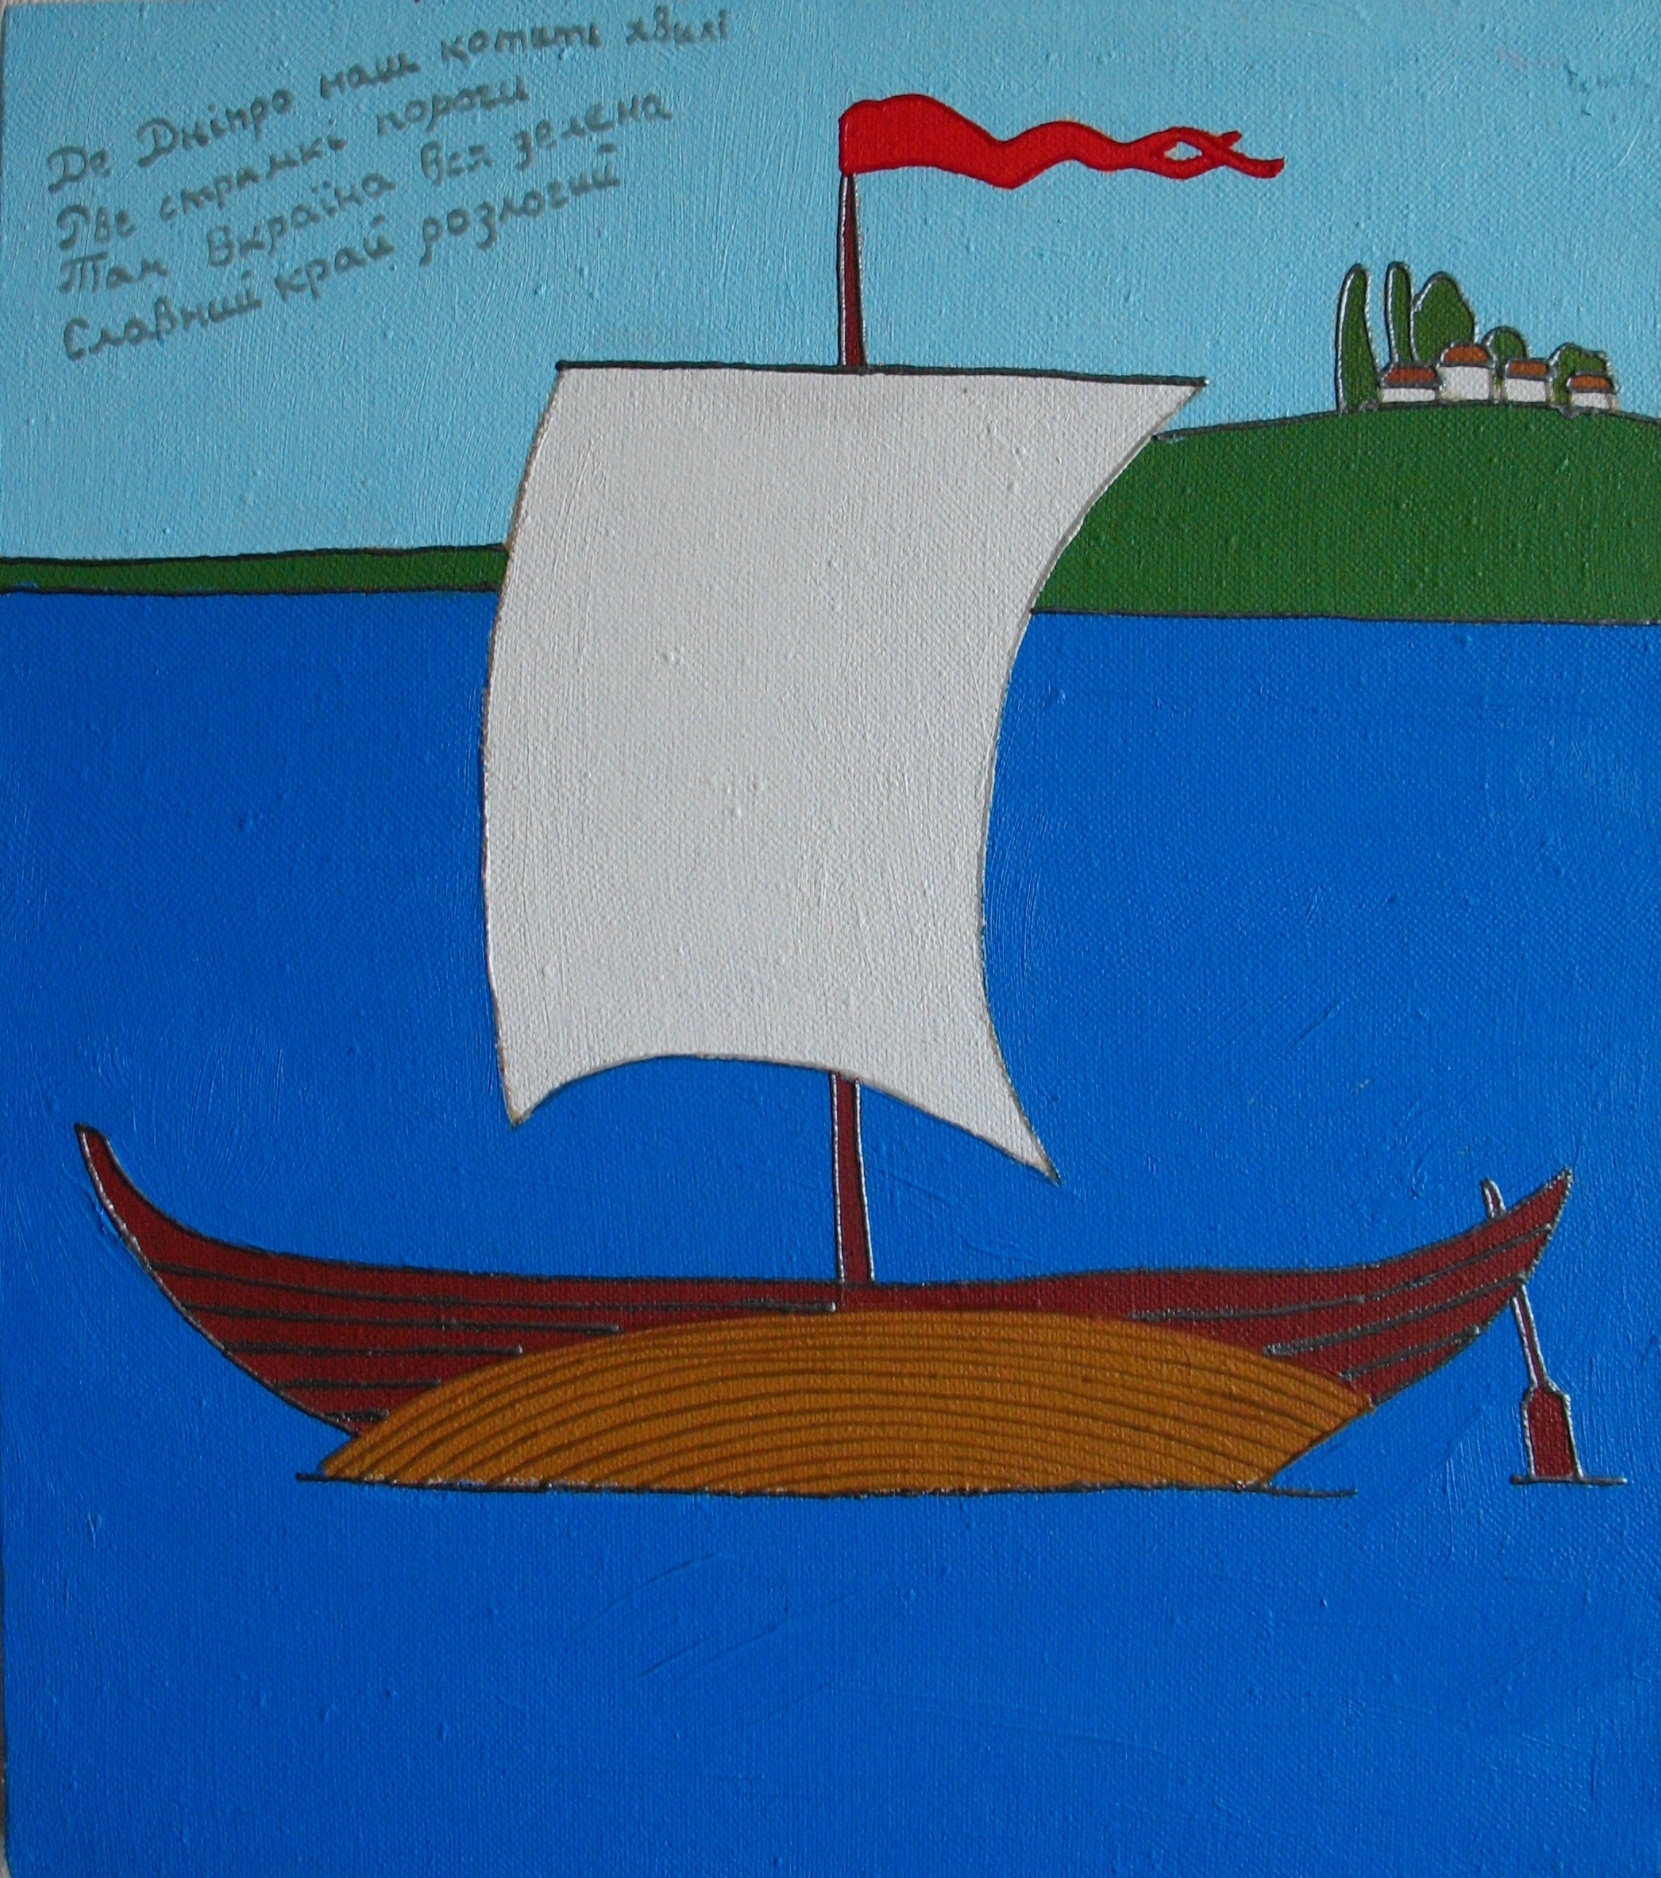 Де Дніпро наш котить хвилі
Рве стрімкі пороги
Там Вкраїна вся зелена
Славний край розлогий